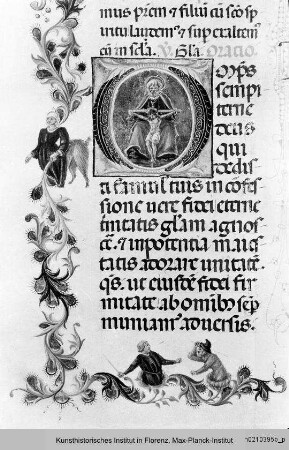 mus prem & filiū cū sco sp
untu laudem & super altem
cū in scla. Gla. Oratio.
Omps
sempi
terne
deus
qui
dedis
ti famul tuis in confes
sione uere fidei eterne
trinitatis glam agnos
ce. & in potentia maies
tatis adorare unitatē.
qs. ut eiusdē fidei fir
mitate ab omibus sep
muniam aduersis.
Kunsthistorisches Institut in Florenz, Max-Planck-Institut